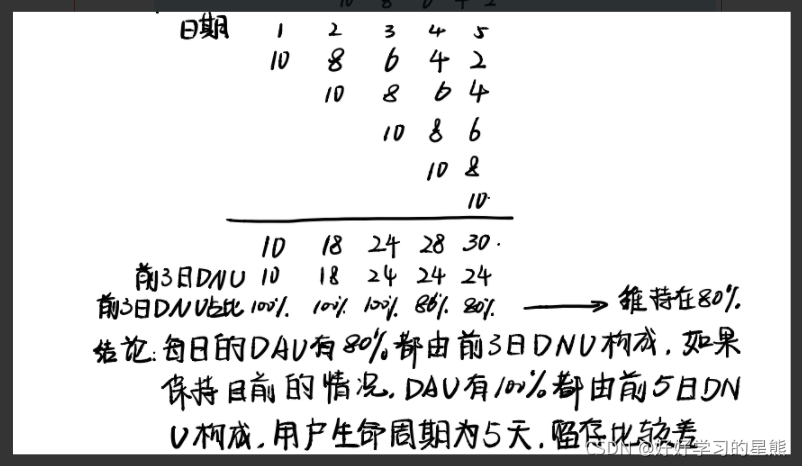 日期 1 2 3 4 5
10 8 6 4 2
10 8 6 4
10 8 6
10 8
10
10 18 24 28 30
前3日DNU 10 18 24 24 24
前3日DNU占比 100% 100% 100% 86% 80% → 维持在80%
结论:每日的DAU有80%都由前3日DNU构成,如果
保持目前的情况,DAU有100%都由前5日DN
U构成,用户生命周期为5天,留存比较差
CSDN @好好学习的星熊